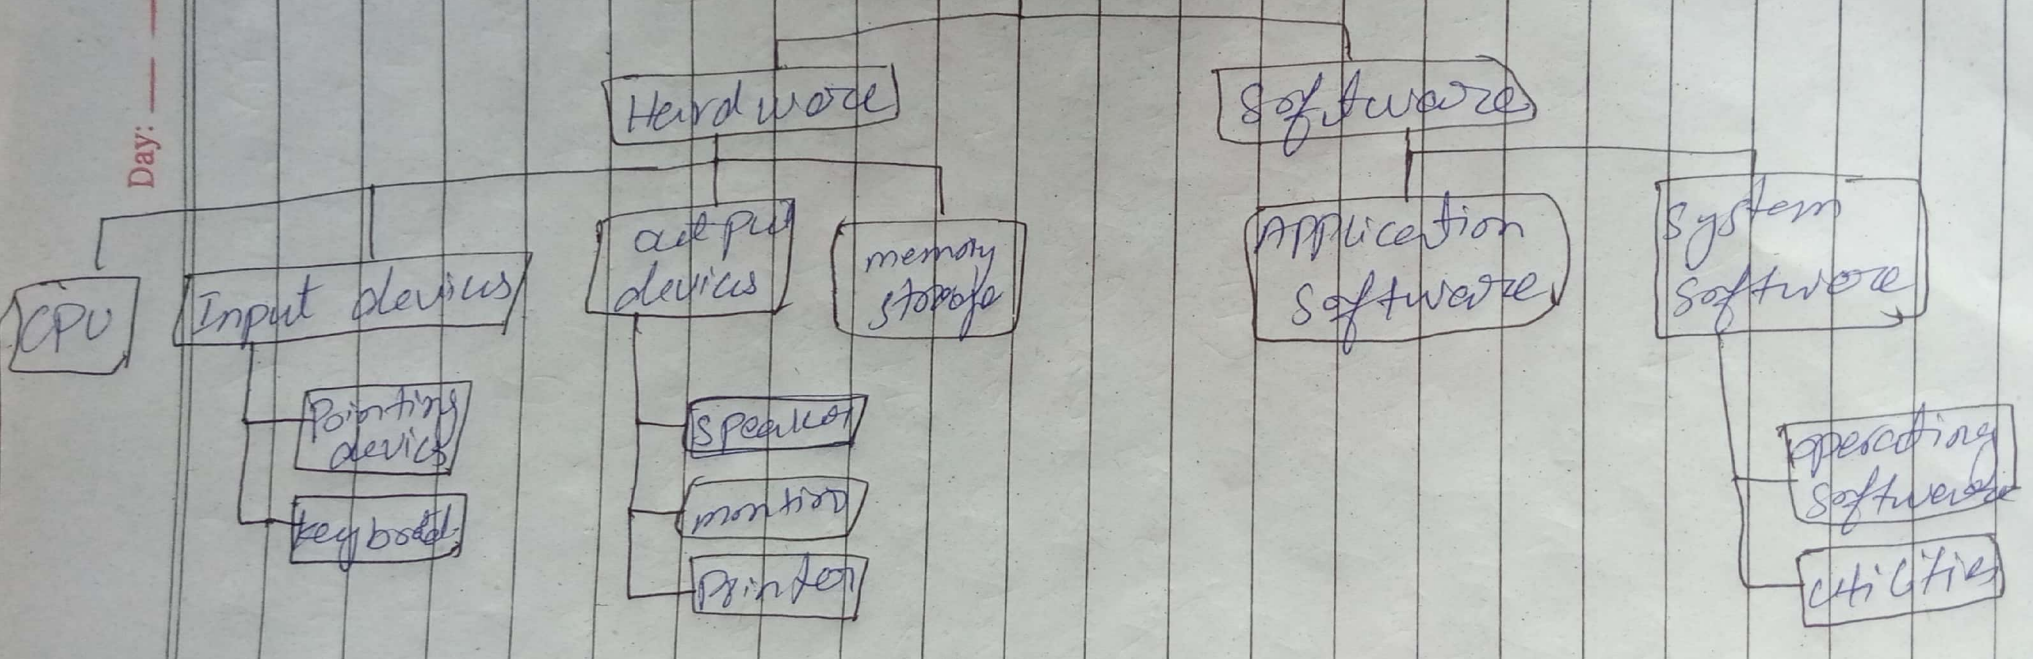 Day:
Hardware
Software
CPU
Input devices
output
devices
memory
storage
Application
Software
System
Software
Pointing
devics
Keybord
Speaker
monitior
Printer
operating
Software
Utilities